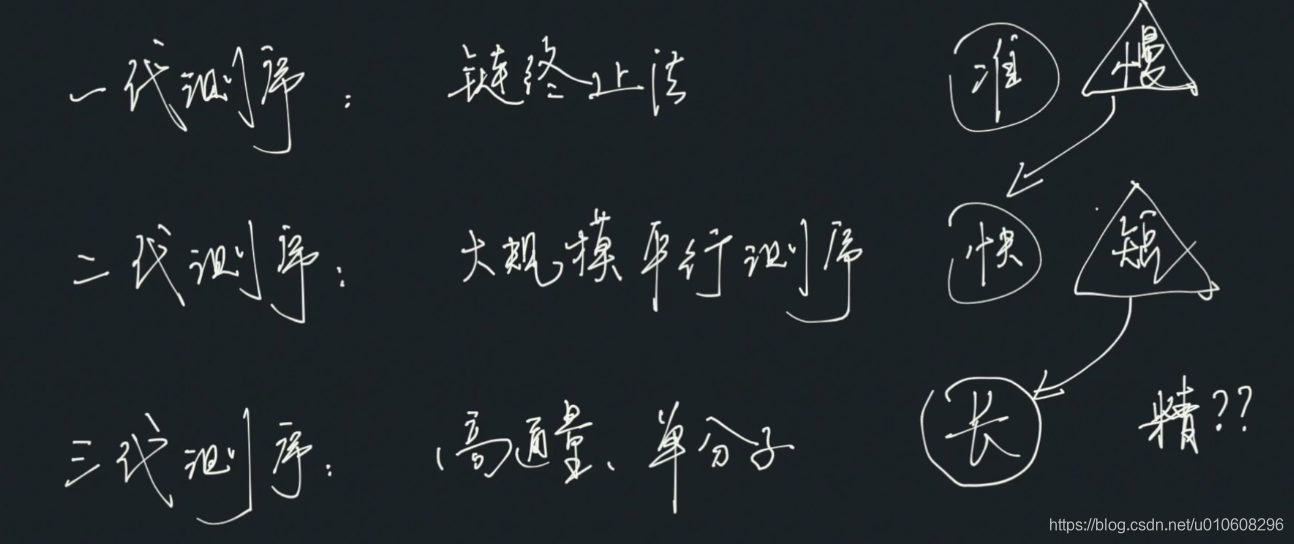 一代测序： 链终止法 准 慢
二代测序： 大规模平行测序 快 短
三代测序： 高通量、单分子 长 精??
https://blog.csdn.net/u010608296